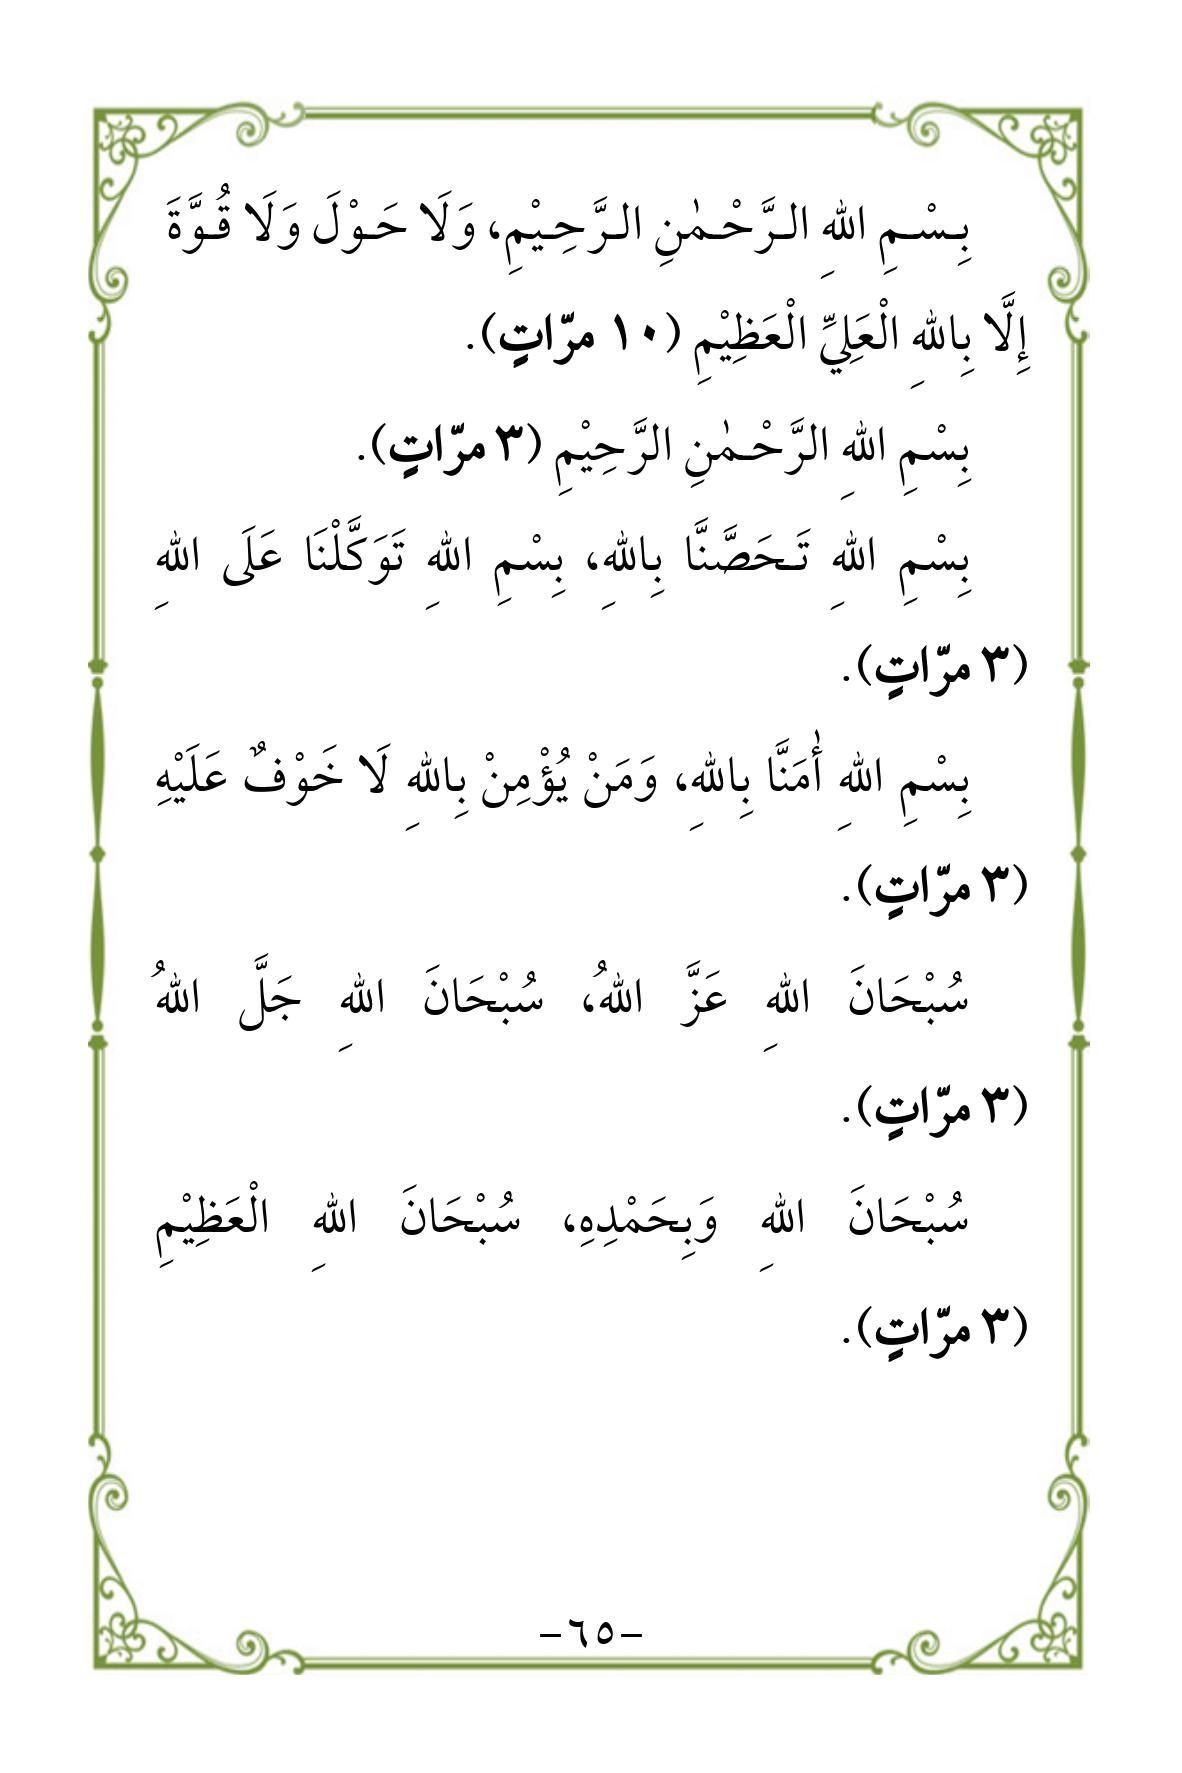 بِسْمِ اللهِ الرَّحْمٰنِ الرَّحِيْمِ، وَلَا حَوْلَ وَلَا قُوَّةَ
إِلَّا بِاللهِ الْعَلِيِّ الْعَظِيْمِ (١٠ مرّاتٍ).
بِسْمِ اللهِ الرَّحْمٰنِ الرَّحِيْمِ (٣ مرّاتٍ).
بِسْمِ اللهِ تَحَصَّنَّا بِاللهِ، بِسْمِ اللهِ تَوَكَّلْنَا عَلَى اللهِ
(٣ مرّاتٍ).
بِسْمِ اللهِ أٰمَنَّا بِاللهِ، وَمَنْ يُؤْمِنْ بِاللهِ لَا خَوْفٌ عَلَيْهِ
(٣ مرّاتٍ).
سُبْحَانَ اللهِ عَزَّ اللهُ، سُبْحَانَ اللهِ جَلَّ اللهُ
(٣ مرّاتٍ).
سُبْحَانَ اللهِ وَبِحَمْدِهِ، سُبْحَانَ اللهِ الْعَظِيْمِ
(٣ مرّاتٍ).
–٦٥–